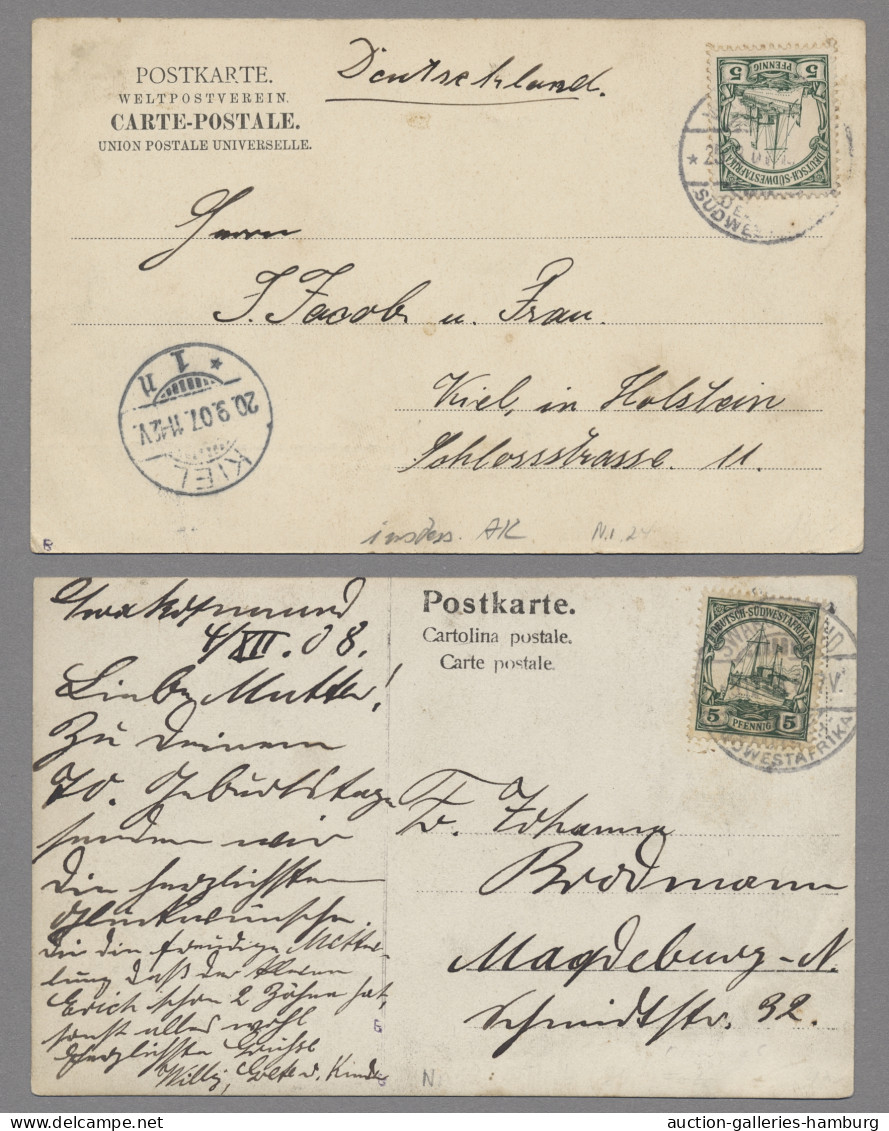 POSTKARTE.
WELTPOSTVEREIN.
CARTE-POSTALE.
UNION POSTALE UNIVERSELLE.
Deutschland.
5 PFENNIG 5
DEUTSCH-SÜDWESTAFRIKA
* 25
SÜDWES
Herrn
J. Jacob u. Frau.
Kiel, in Holstein
Schlossstrasse 11.
KIEL
20.9.07.11-12V.
* 1 n
AK
Swakopmund
4/XII. 08.
Liebe Mutter!
Zu Deinem
70. Geburtstage
senden wir
die herzlichsten
Glückwünsche.
Dir die freudige Mittei-
lung daß der kleine
Erich schon 2 Zähne hat,
sonst alles wohl
Herzlichste Grüße
Willy, u. Kinder
Postkarte.
Cartolina postale.
Carte postale.
DEUTSCH-SÜDWESTAFRIKA
5 PFENNIG 5
SWA ND
V.
DWESTAFRIKA
Fr. Johanna
Brodmann
Magdeburg-N.
Schmidtstr. 32.
N
auction-galleries-hamburg